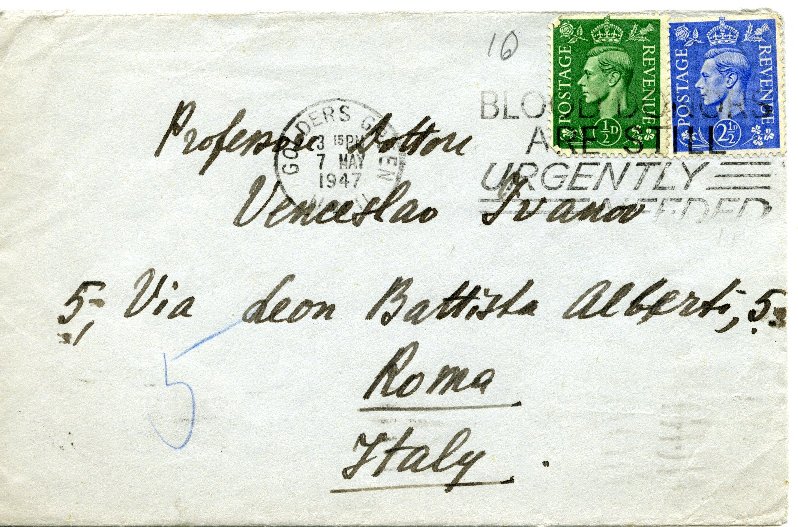 16
POSTAGE REVENUE
½D
POSTAGE REVENUE
2½D
BLOOD DONORS
ARE STILL
URGENTLY
NEEDED
GOLDERS GREEN
3 15 PM
7 MAY
1947
Professor Dottore
Venceslao Ivanov
5, Via Leon Battista Alberti, 5
5
Roma
Italy.